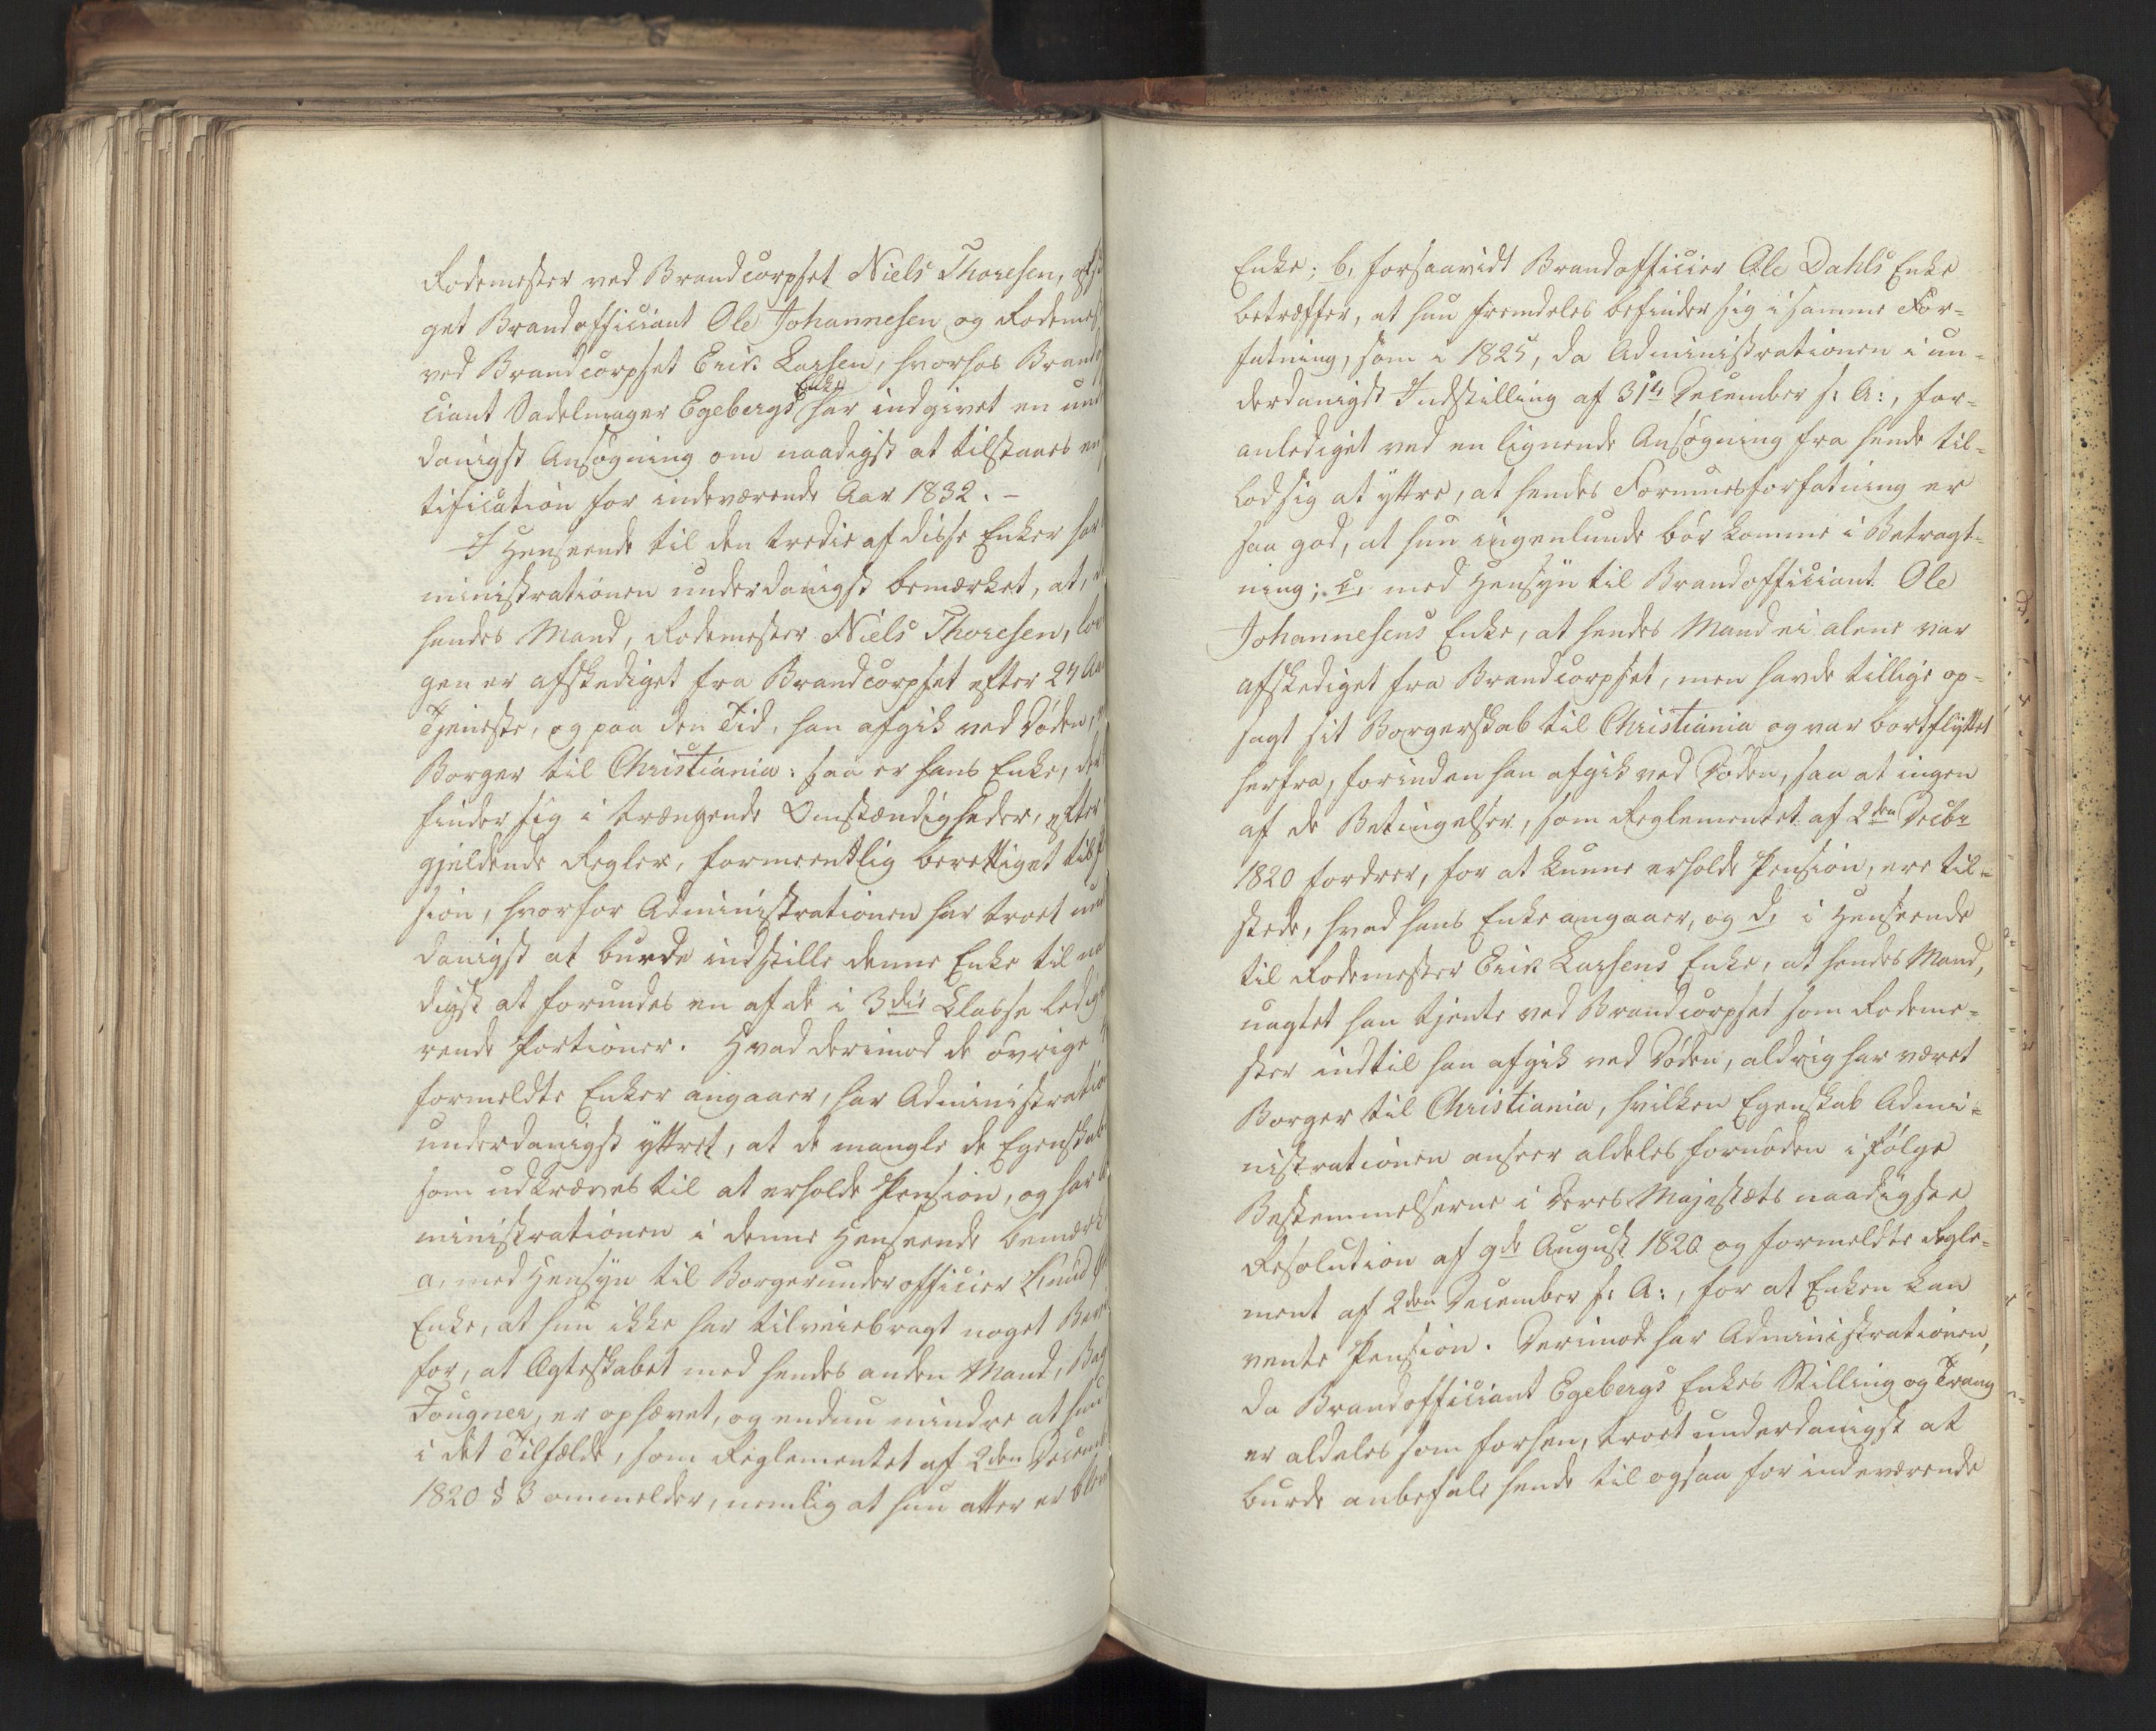 Rodemester ved Brandcorpset Niels Thoresen, afske
get Brandofficiant Ole Johannesen og Rodemest
ved Brandcorpset Erik Larsen, hvorhos Brandof
Enke
ciant Sadelmager Egebergs har indgivet en und
danigst Ansøgning om naadigst at tilstaaes en
tification for indeværende Aar 1832. –
I Henseende til den tredie af disse Enker har
ministrationen underdanigst bemærket, at,
hendes Mand, Rodemester Niels Thoresen, lov
gen er afskediget fra Brandcorpset efter 27 Aar
Tjeneste, og paa den Tid, han afgik ved Døden,
Borger til Christiania: saa er hans Enke, der
finder sig i trængende Omstændigheder, efter
gjeldende Regler, formeentlig berettiget til P
sion, hvorfor Administrationen har troet un
danigst at burde indstille denne Enke til na
digst at forundes en af de i 3die Classe ledig
rende Portioner. Hvad derimod de övrige
formeldte Enker angaaer, har Administratio
underdanigst yttret, at de mangle de Egenskab
som udkræves til at erholde Pension, og har A
ministrationen i denne Henseende bemærk
a, med Hensyn til Borgerunderofficier Knud
Enke, at hun ikke har tilveiebragt noget Bev
for, at Ægteskabet med hendes anden Mand, Bag
Fougner, er ophævet, og endnu mindre at hun
i det Tilfælde, som Reglementet af 2den Decemb
1820 § 3 ommelder, nemlig at hun atter er bleve
Enke; b, forsaavidt Brandofficier Ole Dahls Enke
betræffer, at hun fremdeles befinder sig i samme For-
fatning, som i 1825, da Administrationen i un-
derdanigst Indstilling af 31te December s: A:, for-
anlediget ved en lignende Ansøgning fra hende til-
lod sig at yttre, at hendes Formuesforfatning er
saa god, at hun ingenlunde bör komme i Betragt-
ning; c, med Hensyn til Brandofficiant Ole
Johannesens Enke, at hendes Mand ei alene var
afskediget fra Brandcorpset, men havde tillige op-
sagt sit Borgerskab til Christiania og var bortflyttet
herfra, forinden han afgik ved Døden, saa at ingen
af de Betingelser, som Reglementet af 2den Decbr
1820 fordrer, for at kunne erholde Pension, ere til-
stede, hvad hans Enke angaaer, og d, i Henseende
til Rodemester Erik Larsens Enke, at hendes Mand,
uagtet han tjente ved Brandcorpset som Rodeme-
ster indtil han afgik ved Døden, aldrig har været
Borger til Christiania, hvilken Egenskab Admi-
nistrationen anseer aldeles fornöden i Følge
Bestemmelserne i Deres Majestæts naadigste
Resolution af 9de August 1820 og formeldte Regle-
ment af 2den December s: A:, for at Enken kan
vente Pension. Derimod har Administrationen,
da Brandofficiant Egebergs Enkes Stilling og Trang
er aldeles som forhen, troet underdanigst at
burde anbefale hende til ogsaa for indeværende